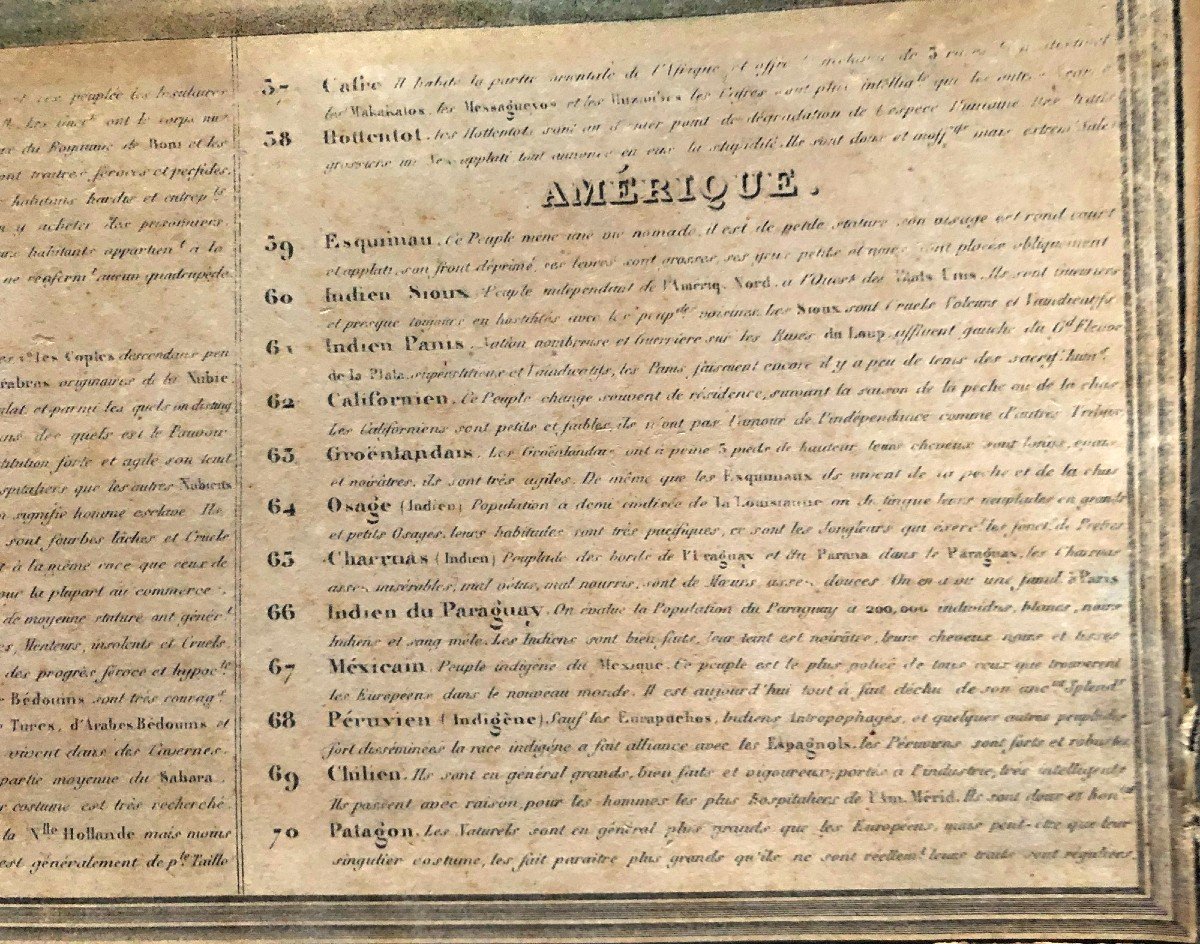 et ces peuples les
ont le corps nu
du Royaume de Boni et les
ont traitres, féroces et perfides.
habitans hardis et entrep.ts
y acheter des prisonniers.
habitants appartien.t à la
ne renferm.t aucun quadrupède
les Coptes descendans peu
Arabes originaires de la Nubie
et parmi les quels on disting
des quels est le Pouvoir
forte et agile son tout
que les autres Nubiens
signifie homme esclave Ils
sont fourbes lâches et Cruels
à la même race que ceux de
pour la plupart au commerce.
de moyenne stature ont génér.t
Menteurs, insolents et Cruels
des progrès féroce et hypoc.te
Bédouins sont très courag.x
Turcs, d'Arabes Bédouins et
vivent dans des Cavernes.
partie moyenne du Sahara.
costume est très recherché.
la N.lle Hollande mais moins
est généralement de p.te Taille
57 Cafre Il habite la partie orientale de l'Afrique et offre le mélange de 3 races
les Makakalos, les Messaguevos et les les Cafres sont plus intellig.ts que les autres
58 Hottentot. les Hottentots sont au dernier point de dégradation de l'espèce humaine
grossiers un Nez applati tout annonce en eux la stupidité. Ils sont doux et inoff. mais extrem.t Sales
AMÉRIQUE.
59 Esquimau. Ce Peuple mène une vie nomade, il est de petite stature son visage est rond court
et applati, son front déprimé, ses lèvres sont grosses, ses yeux petits et noirs sont placés obliquement
60 Indien Sioux. Peuple indépendant de l'Amériq. Nord. à l'Ouest des Etats Unis. Ils sont guerriers
et presque toujours en hostilités avec les peup.des voisines. Les Sioux sont Cruels Voleurs et Vindicatifs
61 Indien Panis. Nation nombreuse et Guerrière sur les Rives du Loup, affluent gauche du G.d Fleuve
de la Plata. superstitieux et Vindicatifs, les Panis faisaient encore il y a peu de tems des sacrif. hum.s
62 Californien. Ce Peuple change souvent de résidence, suivant la saison de la pêche ou de la chas
Les Californiens sont petits et faibles, ils n'ont pas l'amour de l'indépendance comme d'autres Tribus
63 Groënlandais. Les Groënlandais ont à peine 5 pieds de hauteur, leurs cheveux sont longs, épais
et noirâtres, ils sont très agiles. De même que les Esquimaux ils vivent de la pêche et de la chas
64 Osage (Indien) Population à demi civilisée de la Louisianne on distingue leurs peuplades en grands
et petits Osages. leurs habitudes sont très pacifiques, ce sont les Jongleurs qui exerc.t les fonct. de Prêtres
65 Charruas (Indien) Peuplade des bords de l'Uraguay et du Parana dans le Paraguay, les Charuas
assez misérables, mal vêtus, mal nourris, sont de Mœurs assez douces On en a vu une famil. à Paris
66 Indien du Paraguay. On évalue la Population du Paraguay à 200,000 individus, blancs, noirs
Indiens et sang mêlé. Les Indiens sont bien faits, leur teint est noirâtre, leurs cheveux noirs et lisses
67 Méxicain. Peuple indigène du Mexique. Ce peuple est le plus policé de tous ceux que trouvèrent
les Européens dans le nouveau monde. Il est aujourd'hui tout à fait déchu de son anc.ne Splend.r
68 Péruvien (Indigène). Sauf les Eurapuchos, Indiens Antropophages, et quelques autres peuplades
fort disséminées la race indigène a fait alliance avec les Espagnols. les Péruviens sont forts et robustes
69 Chilien. Ils sont en général grands, bien faits et vigoureux, portés à l'industrie, très intelligents
Ils passent avec raison pour les hommes les plus hospitaliers de l'Am. Mérid. Ils sont doux et
70 Patagon. Les Naturels sont en général plus grands que les Européens, mais peut-être que leur
singulier costume, les fait paraître plus grands qu'ils ne sont réellem.t leurs traits sont réguliers.